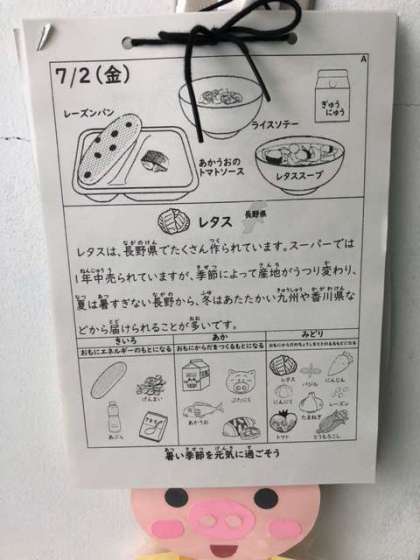 A
7/2(金)
レーズンパン
ぎゅうにゅう
ライスソテー
あかうおの
トマトソース
レタススープ
レタス
長野県
レタスは、長野県でたくさん作られています。スーパーでは
1年中売られていますが、季節によって産地がうつり変わり、
夏は暑すぎない長野から、冬はあたたかい九州や香川県な
どから届けられることが多いです。
きいろ
おもにエネルギーのもとになる
げんまい
あぶら
あか
おもにからだをつくるもとになる
ぶたにく
あかうお
みどり
おもにからだのちょうしをととのえるもとになる
レタス
バジル
にんじん
にんにく
たまねぎ
レーズン
トマト
とうもろこし
暑い季節を元気に過ごそう